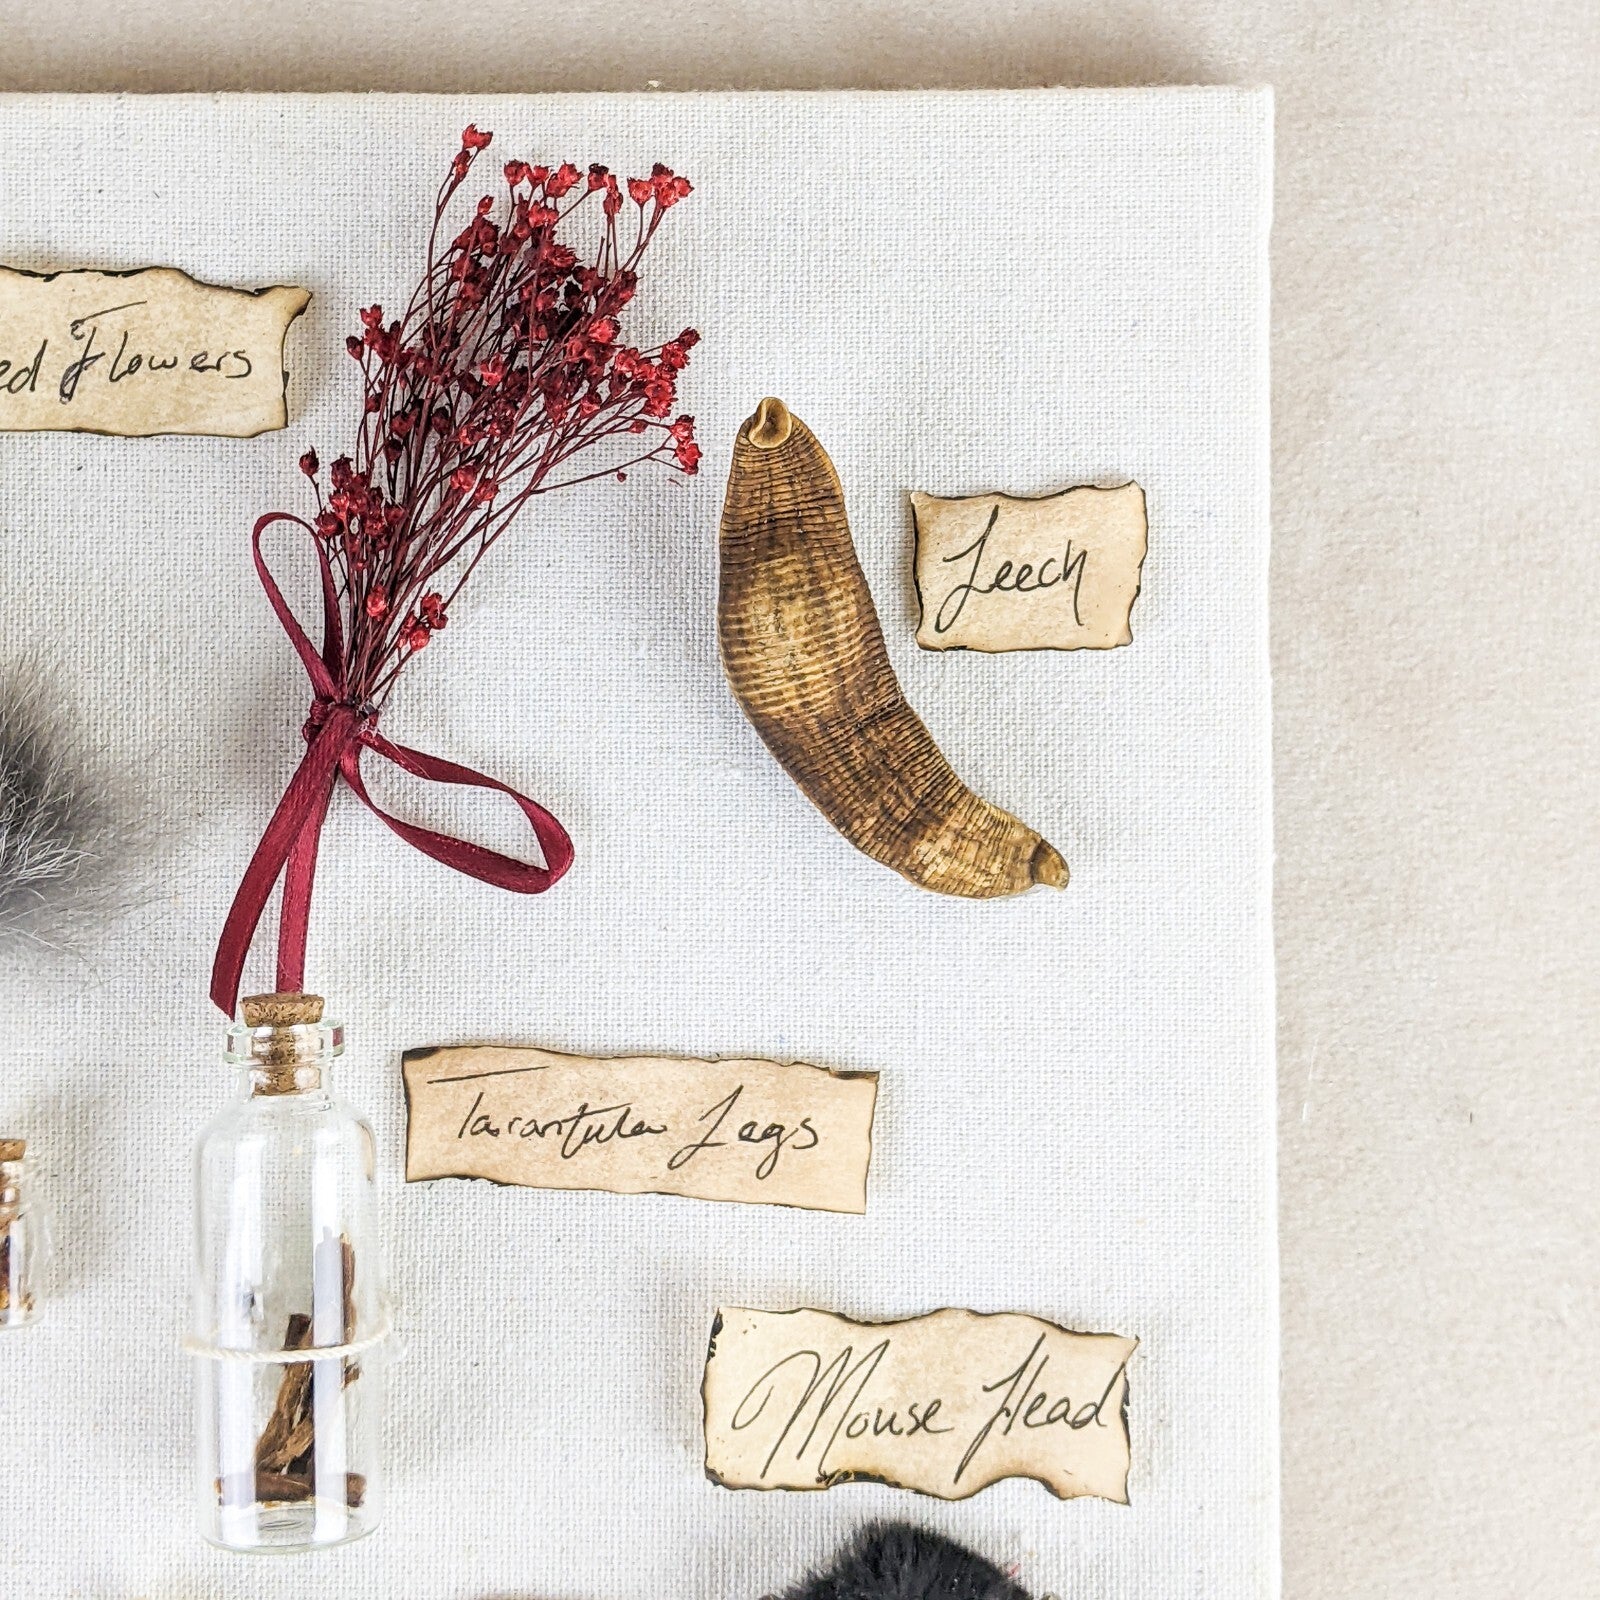 ed Flowers
Leech
Tarantula Legs
Mouse Head